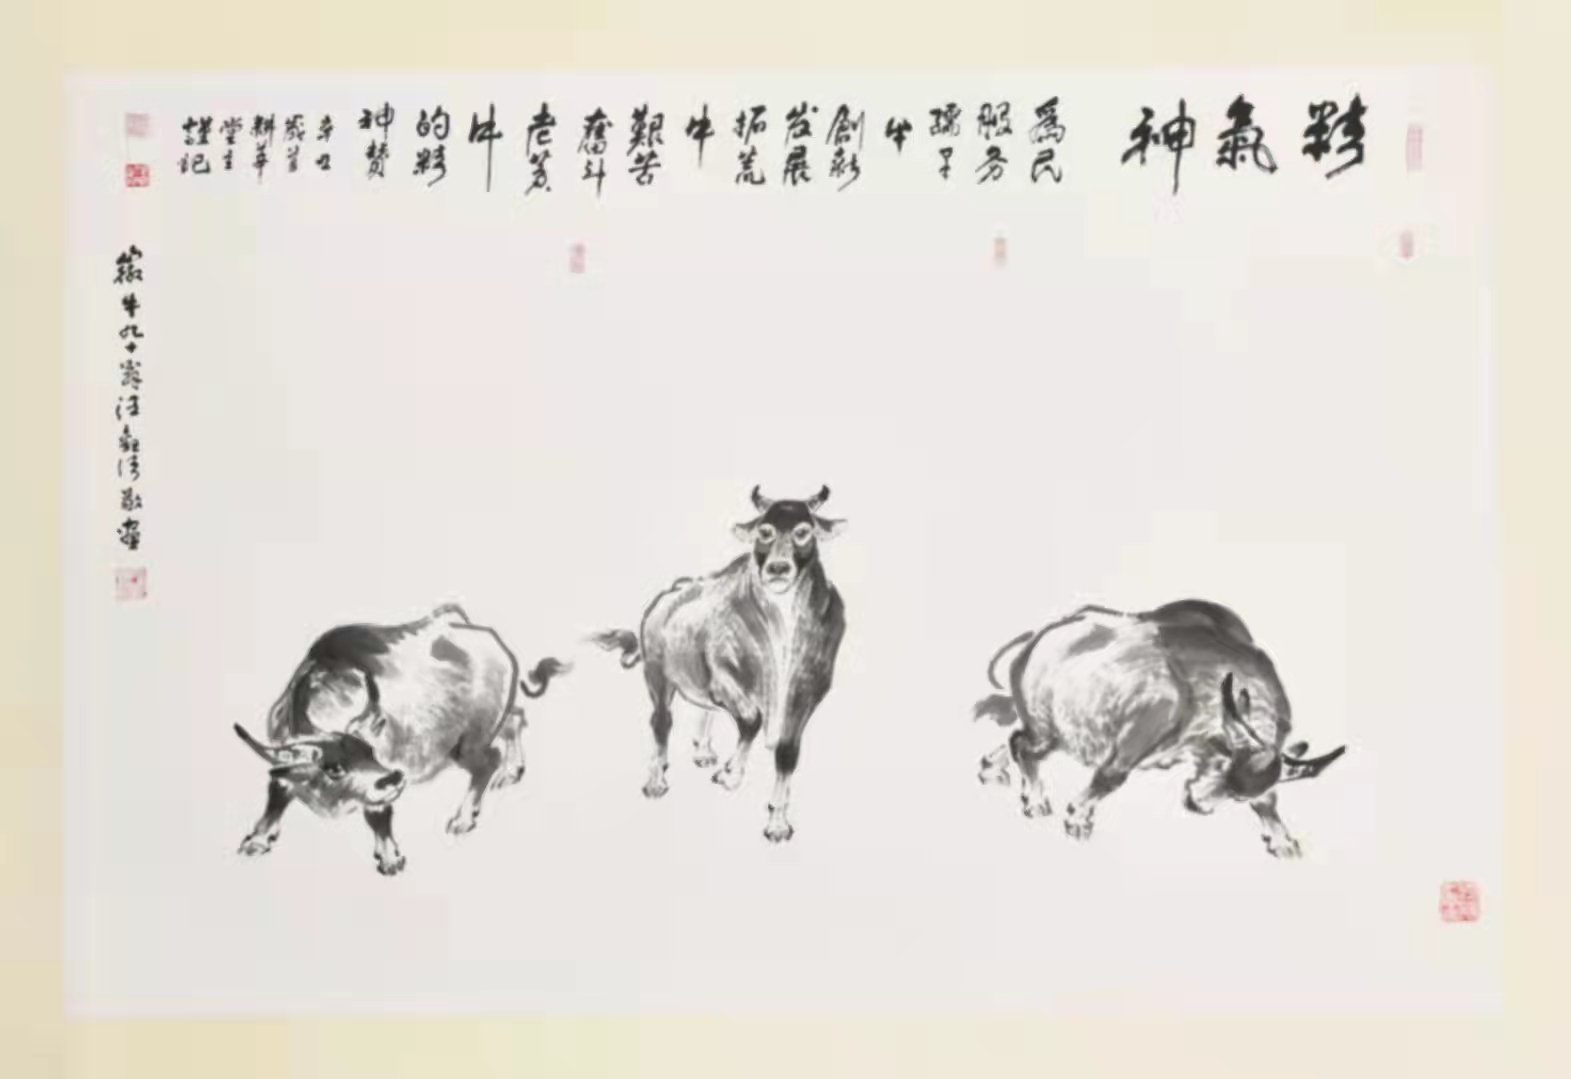 精氣神
爲民
服务
孺子
牛
創新
发展
拓荒
牛
艱苦
奮斗
老黄
牛
的精
神赞
辛丑
歲首
耕莘
堂主
謹記
徽牛九十翁汪觀清敬畫